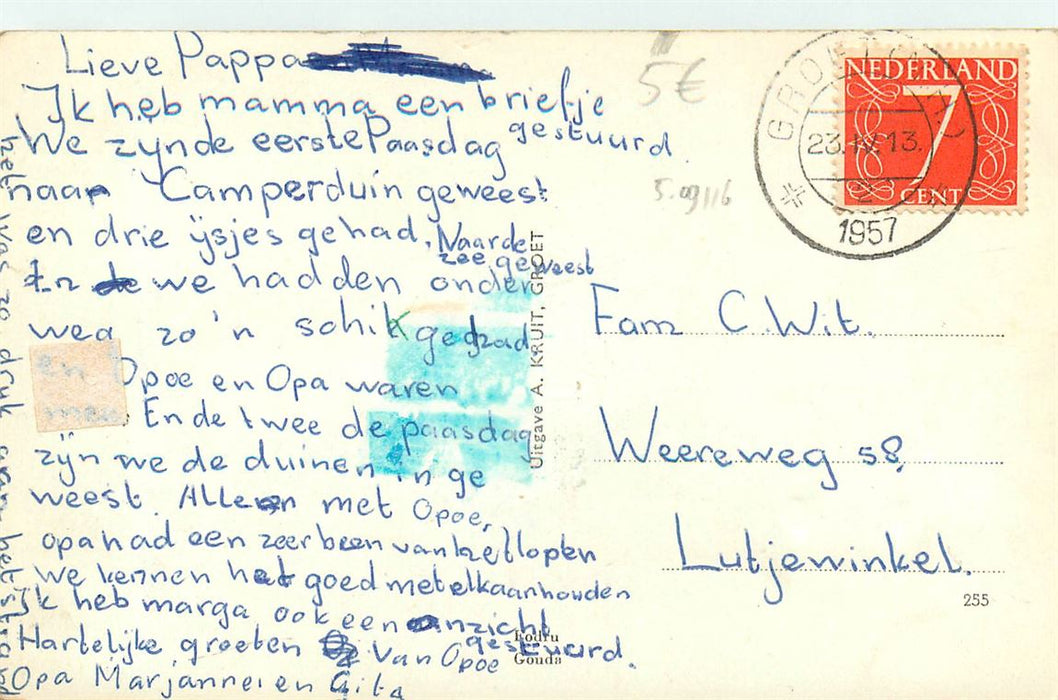 Lieve Pappa
Ik heb mamma een briefje
gestuurd.
We zynde eerste Paasdag
naar Camperduin geweest
en drie ijsjes gehad. Naar de
zee geweest
En we hadden onder
weg zo'n schik gehad
en Opoe en Opa waren
mee. En de twee de paasdag
zijn we de duinen in ge
weest. Alleen met Opoe,
opa had een zeer been van het lopen
We kennen het goed met elkaan houden
Ik heb marga ook een anzicht
gestuurd.
Hartelijke groeten van Opoe
Opa Marjanne en Gita
het was zo druk aan het strand
5€
5.09116
Uitgave A. KRUIT, GROET
Fodru
Gouda
NEDERLAND
7
CENT
23.IV.13.
1957
Fam C. Wit.
Weereweg 58,
Lutjewinkel.
255